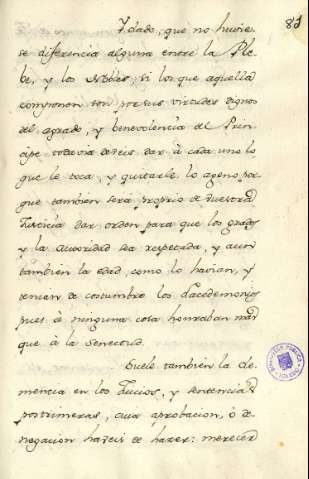 83
Y dado, que no huvie-
se diferencia alguna entre la Ple-
be, y los Nobles, si los que aquella
componen son por sus virtudes dignos
del agrado, y benevolencia del Prin-
cipe todavia deveis dar à cada uno lo
que le toca, y quitarle lo ageno por
que tambien será proprio de vuestra
Justicia dar orden para que los grados
y la autoridad sea respetada, y aun
tambien la edad como lo havian, y
tenian de costumbre los Lacedemonios
pues à ninguna cosa honraban mas
que à la Senectud.
Suele tambien la cle-
mencia en los Juicios, y sentencias
postrimeras, cuia aprobacion, ò de-
negacion haveis de hazer: merecer
BIBLIOTECA PUBLICA